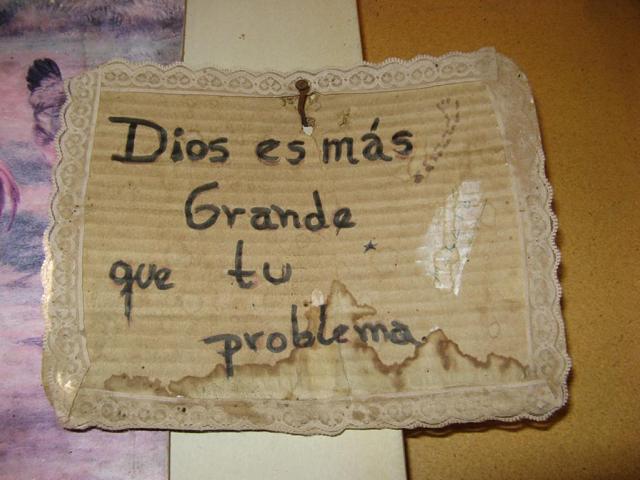 Dios es más
Grande
que tu
problema